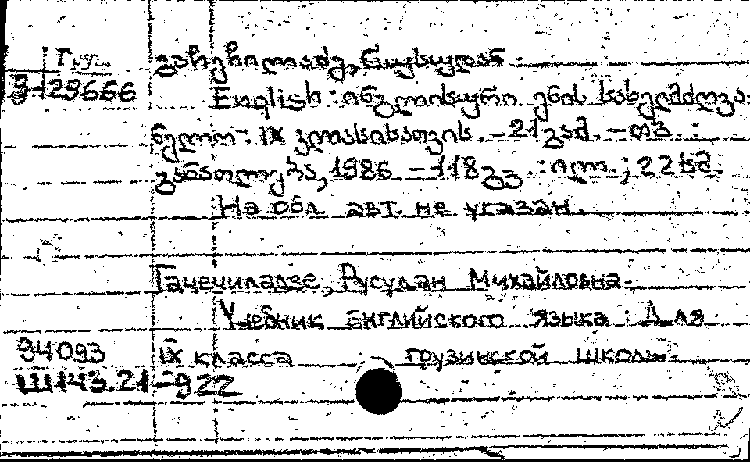 Груз.
გაჩეჩილაძე, რუსუდან.
3-29666
English : ინგლისური ენის სახელმძღვა-
ნელო : IX კლასისათვის. - 21 გამ. - თბ. :
განათლება, 1986 - 118 გვ. : ილ. ; 22 სმ.
На обл. авт. не указан.
Гачечиладзе, Русудан Михайловна.
Учебник английского языка : Для
94093 IX класса грузинской школы.
Ш143.21-922